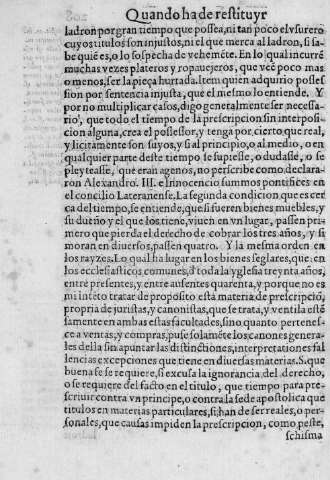 Quando ha de restituyr
ladron por gran tiempo que possea, ni tan poco el vsurero
cuyos titulos son injustos, ni el que merca al ladron, si sa-
be quiẽ es, o lo sospecha de vehemẽte. En lo qual incurrẽ
muchas vezes plateros y ropauejeros, que veẽ poco mas
o menos, ser la pieça hurtada. Item quien adquirio posses
sion por sentencia injusta, que el mesmo lo entiende. Y
por no multiplicar casos, digo generalmente ser necessa-
rio, que todo el tiempo de la prescripcion sin interposi-
cion alguna, crea el possessor, y tenga por cierto, que real,
y licitamente son suyos, y si al principio, o al medio, o en
qualquier parte deste tiempo se supiesse, o dudasse, o se
pleyteasse, que eran agenos, no perscribe como declara-
ron Alexandro. III. e Innocencio summos pontifices en
el concilio Lateranense. La segunda condicion que es cer
ca del tiempo, se entiende, que si fueren bienes muebles, y
su dueño y el que los tiene, viuen en vn lugar, passen pri-
mero que pierda el derecho de cobrar los tres años, y si
moran en diuersos, passen quatro. Y la mesma orden en
los rayzes. Lo qual ha lugar en los bienes seglares, que en
los ecclesiasticos comunes, d toda la yglesia treynta años,
entre presentes, y entre ausentes quarenta, y porque no es
mi intẽto tratar de proposito esta materia de prescripciõ,
propria de juristas, y canonistas, que se trata, y ventila estẽ
samente en ambas estas facultades, sino quanto pertenes-
ce a ventas, y compras, puse solamẽte los canones genera-
les della sin apuntar las distinctiones, interpretationes fal
lencias excepciones que tiene en diuersas materias. S. que
buena fe se requiere, si excusa la ignorancia del derecho,
o se requiere del facto en el titulo, que tiempo para pres-
criuir contra vn principe, o contra la sede apostolica que
titulos en materias particulares, si han de ser reales, o per-
sonales, que causas impiden la prescripcion, como peste,
schisma